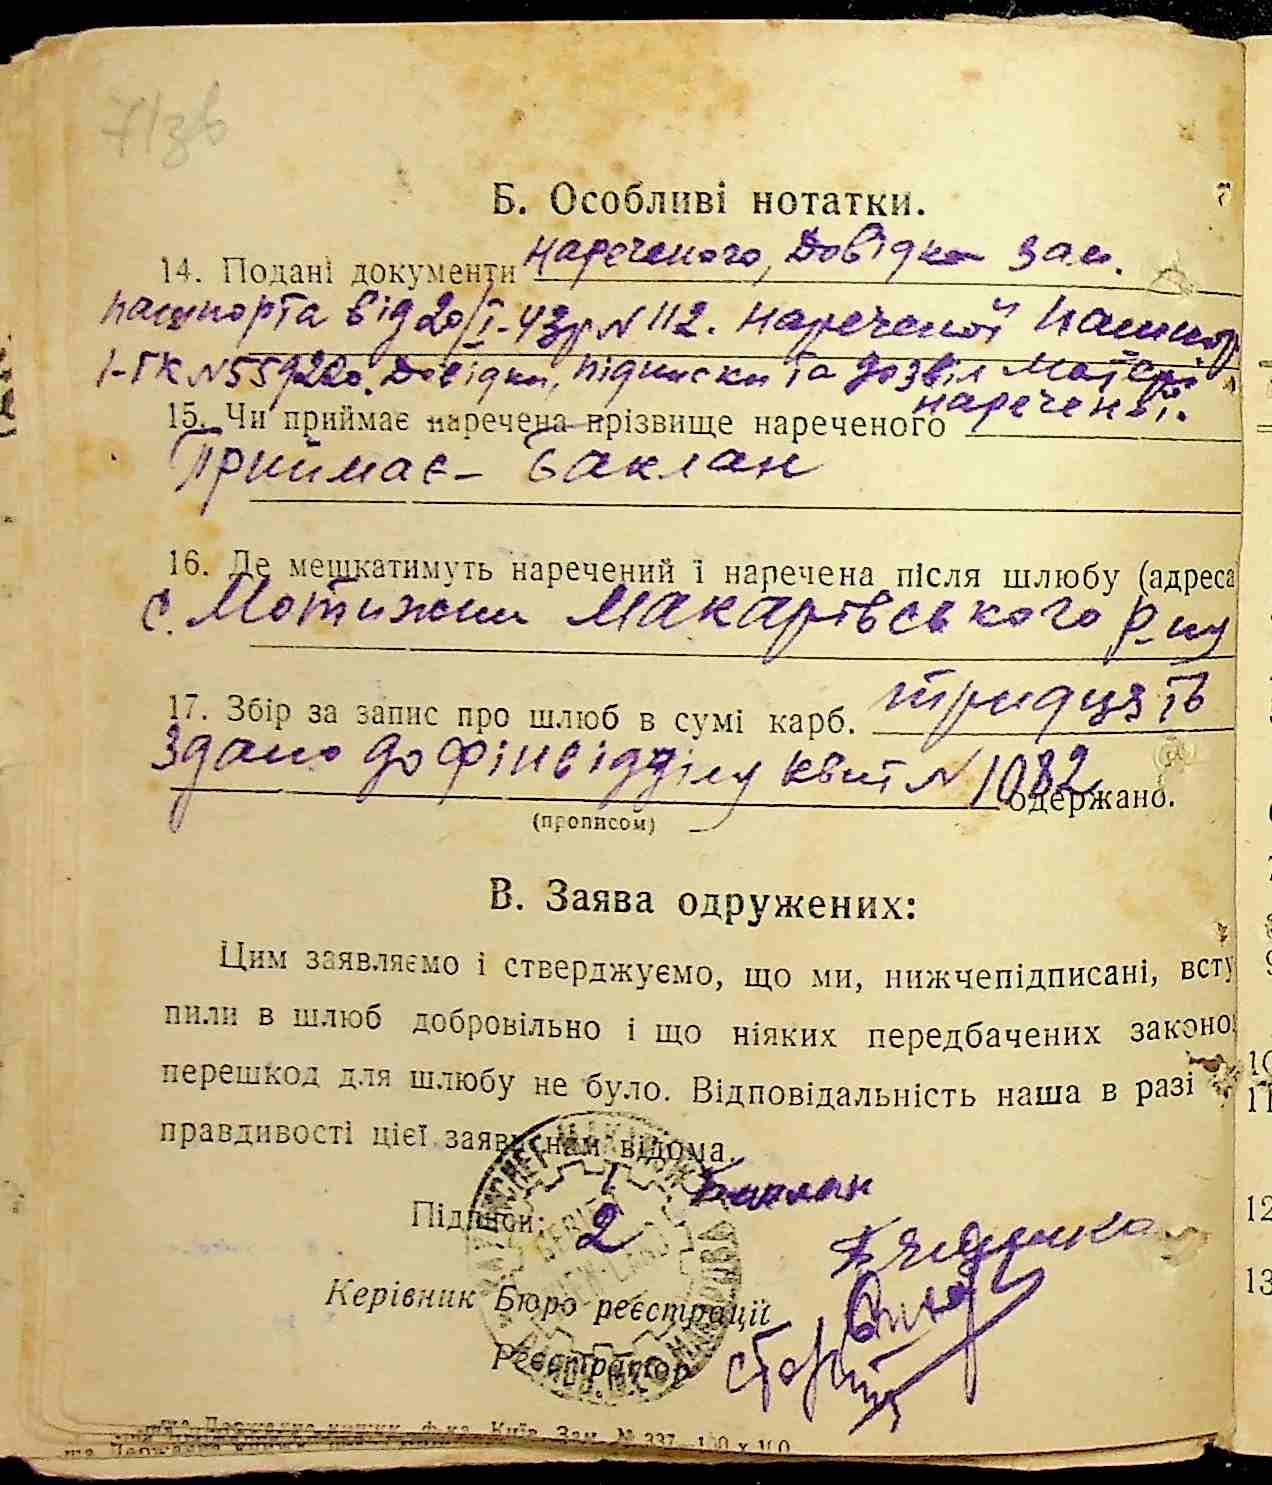 71зв
Б. Особливі нотатки.
7
14. Подані документи нареченого, Довідка зам.
пашпорта від 20/I-43р N 112. Нареченої пашпор
1-ГК N 559220. Довідки, підписки та дозвіл матері
нареченої.
15. Чи приймає наречена прізвище нареченого
Приймає - Баклан
16. Де мешкатимуть наречений і наречена після шлюбу (адреса
с. Мотижин Макарівського р-ну
17. Збір за запис про шлюб в сумі карб. тридцять
Здано до фінвідділу квит N 1082
одержано.
(прописом)
В. Заява одружених:
Цим заявляємо і стверджуємо, що ми, нижчепідписані, всту
пили в шлюб добровільно і що ніяких передбачених законо
перешкод для шлюбу не було. Відповідальність наша в разі
правдивості цієї заяви нам відома.
1 Баклан
Підписи: 2
Керівник Бюро реєстрації
Реєстратор
Київ. Зам. № 337